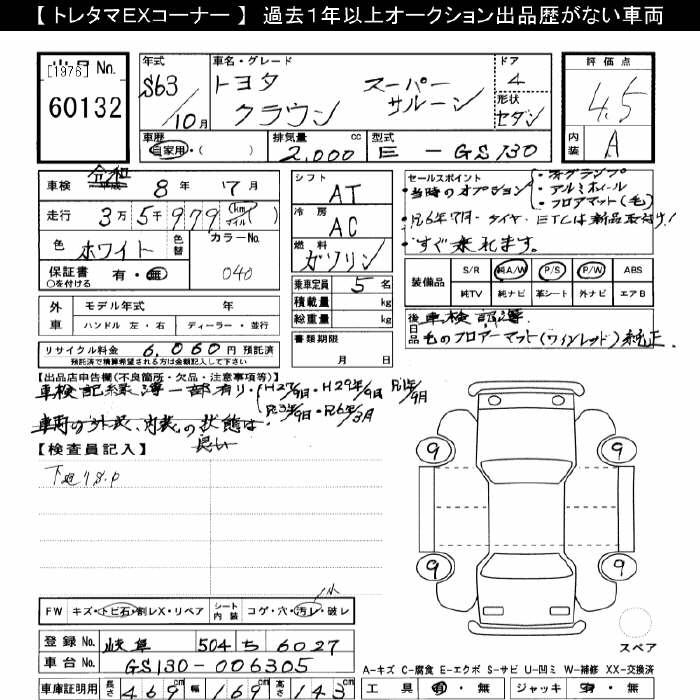 【 トレタマEXコーナー 】 過去１年以上オークション出品歴がない車両
[1976] No.
60132
年式
S63
10月
車名・グレード
トヨタ スーパー
クラウン サルーン
ドア
4
形状
セダン
評価点
4.5
内装
A
車歴
自家用・( )
排気量 cc
2,000
型式
E - GS130
令和
車検 8年 7月
走行 3万5千979 (km マイル)
色 ホワイト 色替
カラーNo.
040
保証書 有・無
○を付ける
シフト
AT
冷房
AC
燃料
ガソリン
乗車定員 5 名
積載量 kg
総重量 kg
書類期限
月 日
セールスポイント
・当時のオプション
・アルミホイール
・フロアマット(毛)
・R6年7月 タイヤ、ETCは新品取付!
・すぐ乗れます。
装備品
S/R 純A/W P/S P/W ABS
純TV 純ナビ 革シート 外ナビ エアB
外車
モデル年式 年
ハンドル 左・右 ディーラー・並行
リサイクル料金 6,060円 預託済
預託済で積算希望される方は金額記入して下さい
後日品
車検記録簿
毛のフロアーマット(ワインレッド)純正
【出品店申告欄(不良箇所・欠品・注意事項等)】
車検記録簿一部有り・H27/9月・H29年/9月 R1年/9月
R3年/9月・R6年/3月
車両の外装、内装の状態は
良い
【検査員記入】
下廻りS.P
9 9
9 9
スペア
FW キズ・トビ石・割レX・リペア
シート内装 コゲ・穴・汚レ・破レ
小
登録No. 岐阜 504 ち 6027
車台No. GS130-006305
車庫証明用 長さ 469cm 幅 169cm 高さ 143cm
A-キズ C-腐食 E-エクボ S-サビ U-凹ミ W-補修 XX-交換済
工具 有・無 ジャッキ 有・無